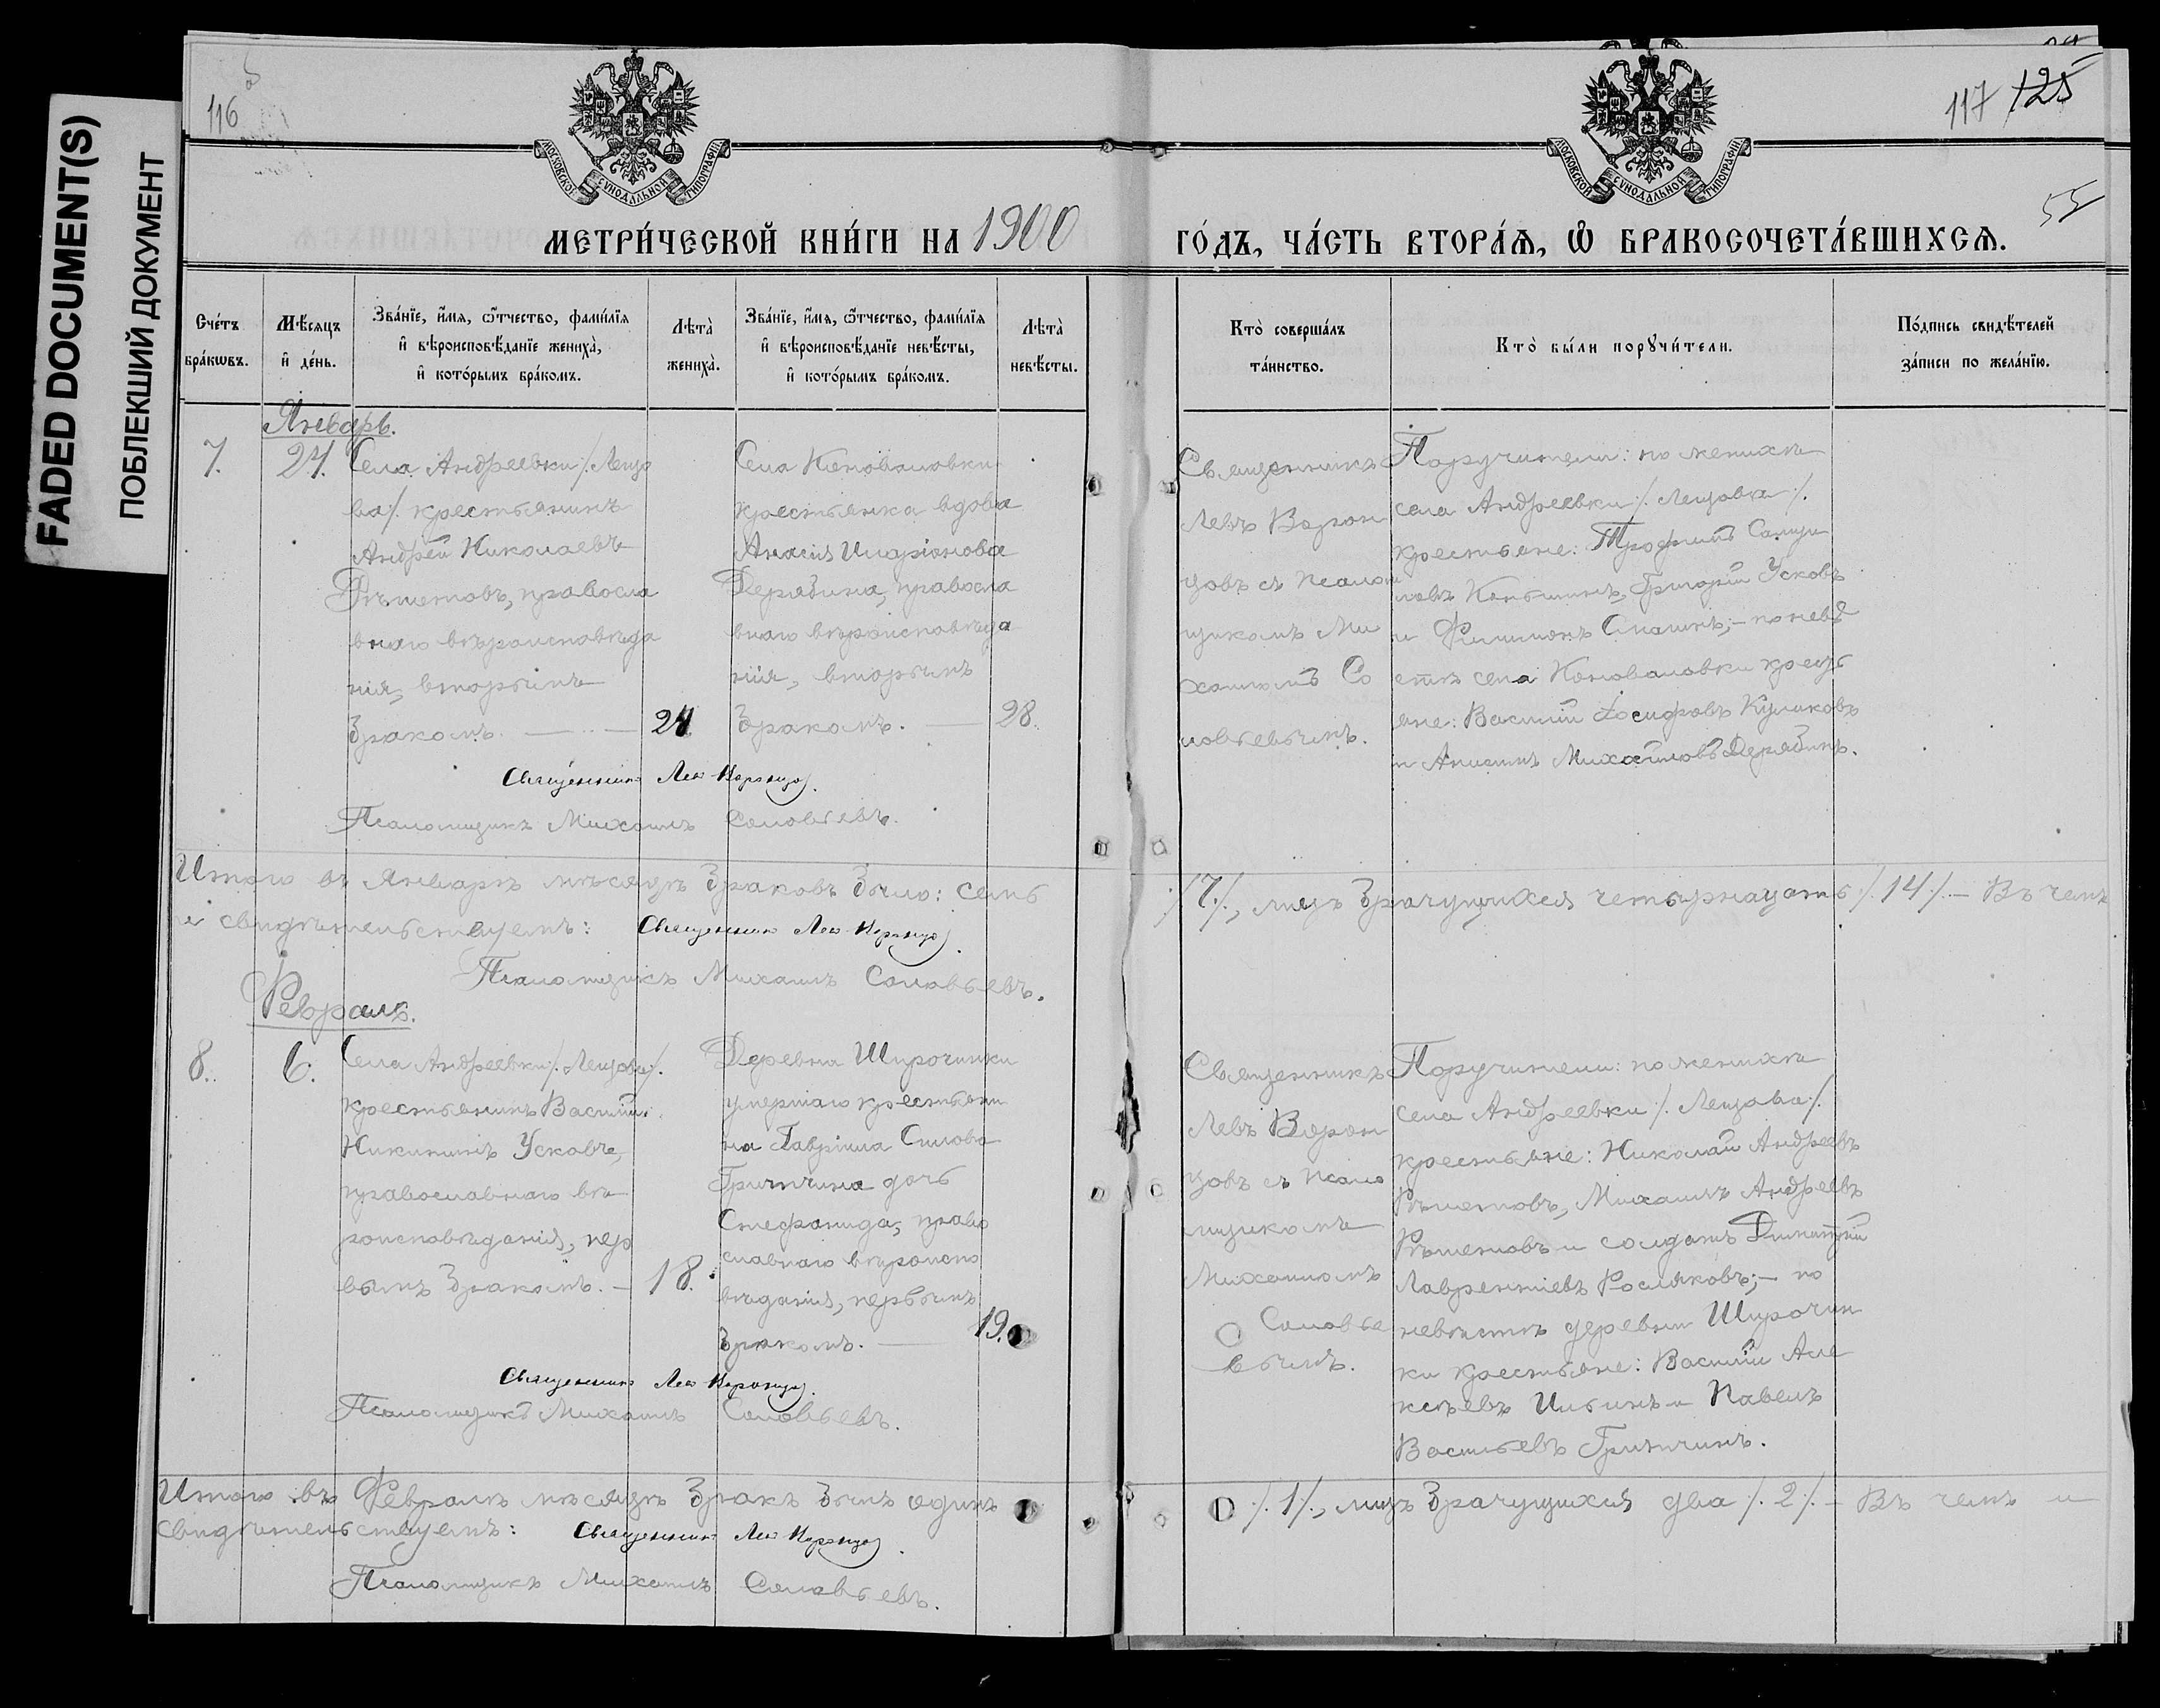 FADED DOCUMENT(S)
ПОБЛЕКШИЙ ДОКУМЕНТ
116
117 125
55
МОСКОВСКОЙ СѴНОДАЛЬНОЙ ТИПОГРАФІИ
МОСКОВСКОЙ СѴНОДАЛЬНОЙ ТИПОГРАФІИ
МЕТРИ́ЧЕСКОЙ КНИ́ГИ НА 1900
ГО́ДЪ, ЧА́СТЬ ВТОРА́Ѧ, Ѽ БРАКОСОЧЕТА́ВШИХСѦ.
Сче́тъ
бра́кѡвъ.
Мѣ́сяцъ
и҆ де́нь.
Зва́нїе, и҆́мя, ѻ҆́тчество, фами́лїя
и҆ вѣроисповѣ́данїе жениха̀,
и҆ кото́рымъ бра́комъ.
Лѣта̀
жениха̀.
Зва́нїе, и҆́мя, ѻ҆́тчество, фами́лїя
и҆ вѣроисповѣ́данїе невѣ́сты,
и҆ кото́рымъ бра́комъ.
Лѣта̀
невѣ́сты.
Кто̀ соверша́лъ
та́инство.
Кто̀ бы́ли порꙋчи́тели.
По́дпись свидѣ́телей
за́писи по жела́нїю.
Январь.
7.
24.
Села Андреевки /. Лещо
ва/. крестьянинъ
Андрей Николаевъ
Рѣшетовъ, правосла
внаго вѣроисповѣда
нія, вторымъ
бракомъ.
24
Села Коноваловки
крестьянка вдова
Иларіонова
Дерябина, правосла
внаго вѣроисповѣда
нія, вторымъ
бракомъ.
28.
Священникъ
Левъ Ворон
цовъ съ псалом
щикомъ Ми
хаиломъ Со
ловьевымъ.
Поручители: по женихѣ
села Андреевки /. Лещова /.
крестьяне: Трофимъ Самуи
ловъ Коньшинъ, Григорій Усковъ
и Филимонъ; – по невѣ
стѣ села Коноваловки кресть
яне: Василій Іосифовъ Куликовъ
и Михайловъ Дерябинъ.
Священникъ Левъ Воронцовъ.
Псаломщикъ Михаилъ Соловьевъ.
Итого въ Январѣ мѣсяцѣ браковъ было: семь /.7./, лицъ брачущихся четырнадцать /.14./. – Въ чемъ
и свидѣтельствуемъ: Священникъ Левъ Воронцовъ.
Псаломщикъ Михаилъ Соловьевъ.
Февраль.
8.
6.
Села Андреевки /. Лещова /.
крестьянинъ Василій
Никитинъ Усковъ,
православнаго вѣ
роисповѣданія, пер
вымъ бракомъ. –
18.
Деревни Широчинки
умершаго крестьяни
на Гавріила Силова
Гричина дочь
Стефанида, право
славнаго вѣроиспо
вѣданія, первымъ
бракомъ.
19.
Священникъ
Левъ Ворон
цовъ съ псало
мщикомъ
Михаиломъ
Соловье
вымъ.
Поручители: по женихѣ
села Андреевки /. Лещова /.
крестьяне: Николай Андреевъ
Рѣшетовъ, Михаилъ Андреевъ
Рѣшетовъ и солдатъ Димитрій
Лаврентіевъ Росляковъ; – по
невѣстѣ деревни Широчин
ки крестьяне: Василій Але
ксѣевъ Ильинъ и Павелъ
Васильевъ
Священникъ Левъ Воронцовъ.
Псаломщикъ Михаилъ Соловьевъ.
Итого въ Февралѣ мѣсяцѣ бракъ былъ одинъ /.1./, лицъ брачущихся два /.2./. – Въ чемъ и
свидѣтельствуемъ: Священникъ Левъ Воронцовъ.
Псаломщикъ Михаилъ Соловьевъ.